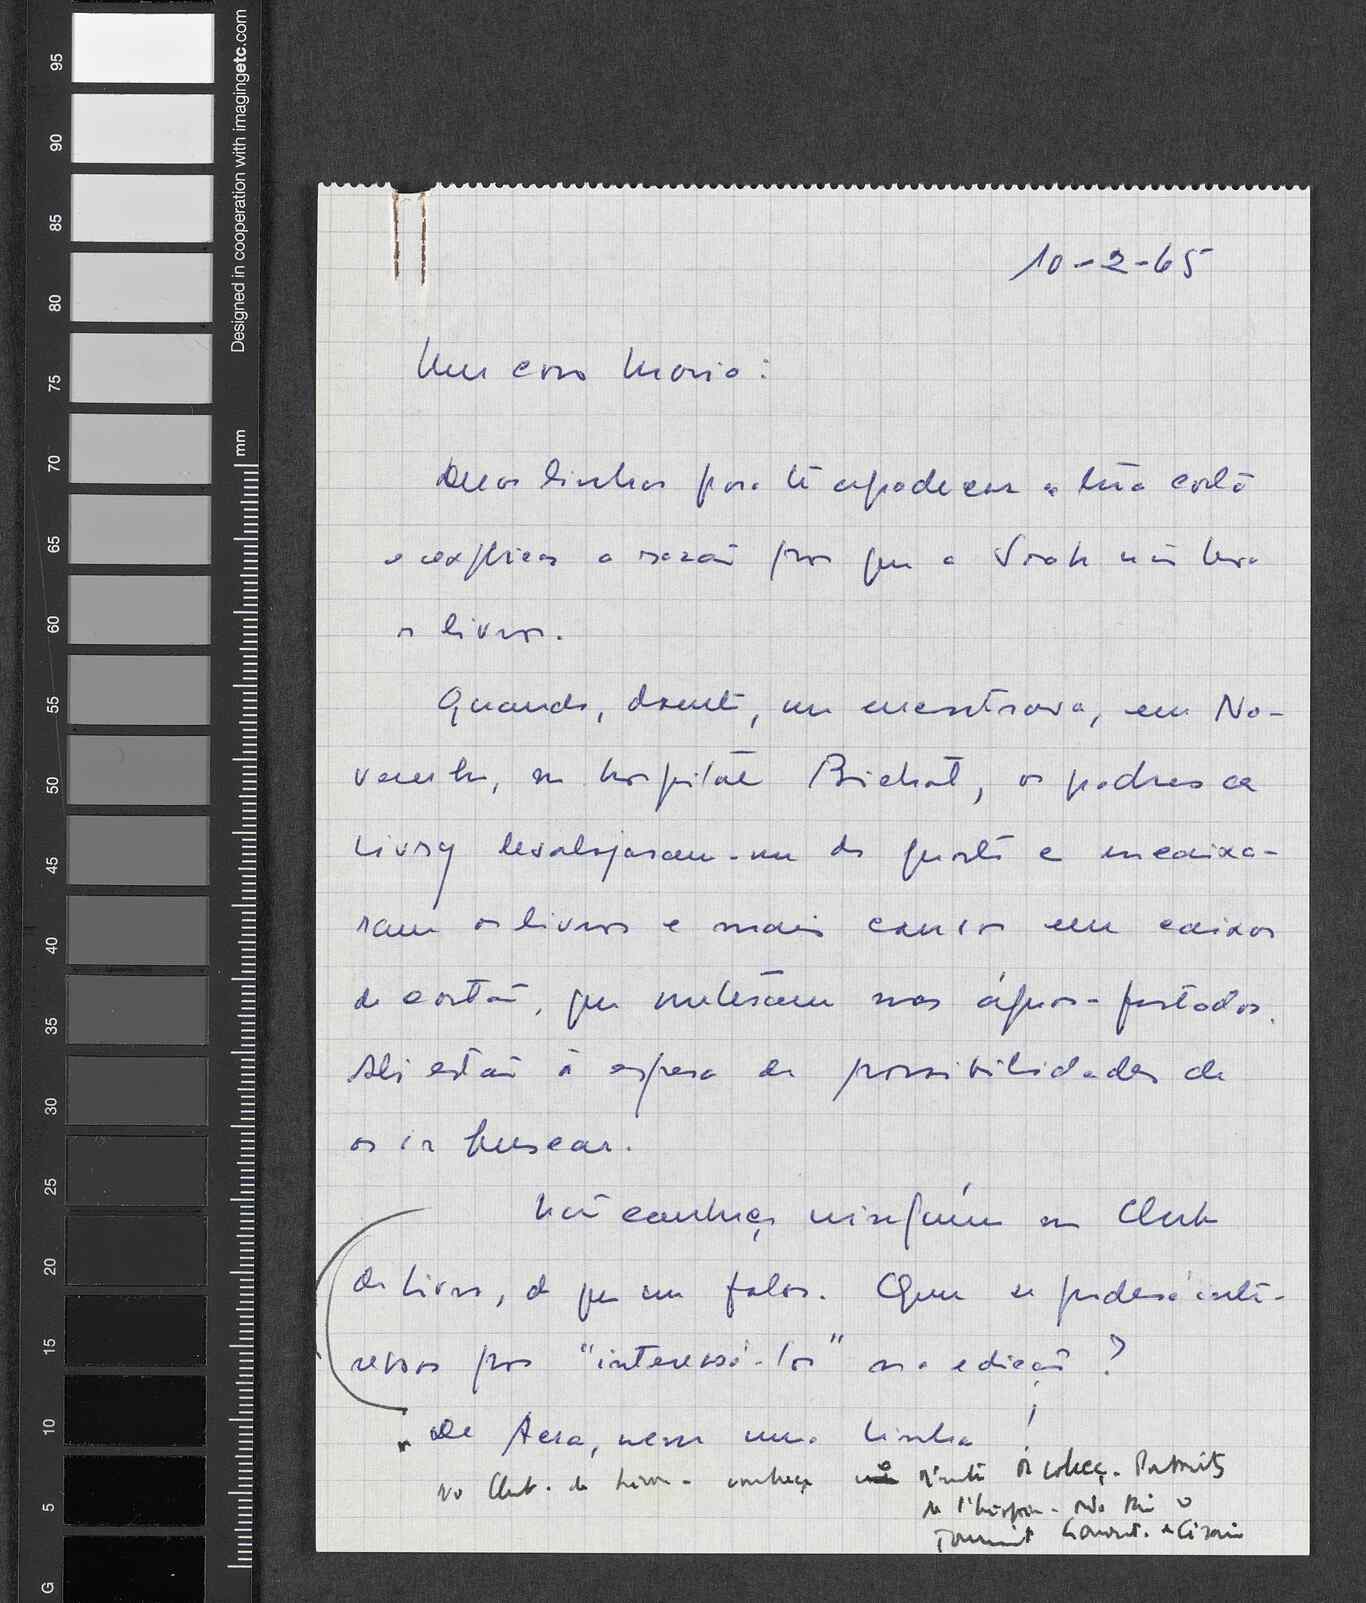 Designed in cooperation with imagingetc.com
mm
95
90
85
80
75
70
65
60
55
50
45
40
35
30
25
20
15
10
5
G
10-2-65
Meu caro Mario:
Duas linhas para te agradecer a tua carta
e explicar a razão por que a Sarah não leva
os livros.
Quando, doente, me encontrava, em No-
vembro, no hospital Bichat, os padres de
Livry desalojaram-me do quarto e encaixa-
ram os livros e mais coisas em caixas
de cartão, que meteram nas águas-furtadas.
Ali estão à espera de possibilidades de
os ir buscar.
Não conheço ninguém no Club
do Livro, de que me falas. Quem se poderá inte-
ressar por "interessá-los" na edição?
De Acra, nem uma linha!
No Club. do Livro - conheço